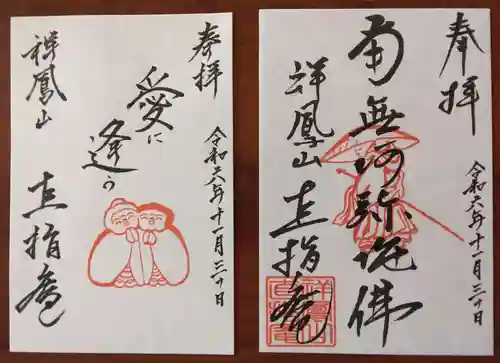 奉拝
令和六年十一月三十日
愛に
逢う
祥鳳山
直指庵
奉拝
令和六年十一月三十日
南無阿弥陀佛
祥鳳山
直指庵